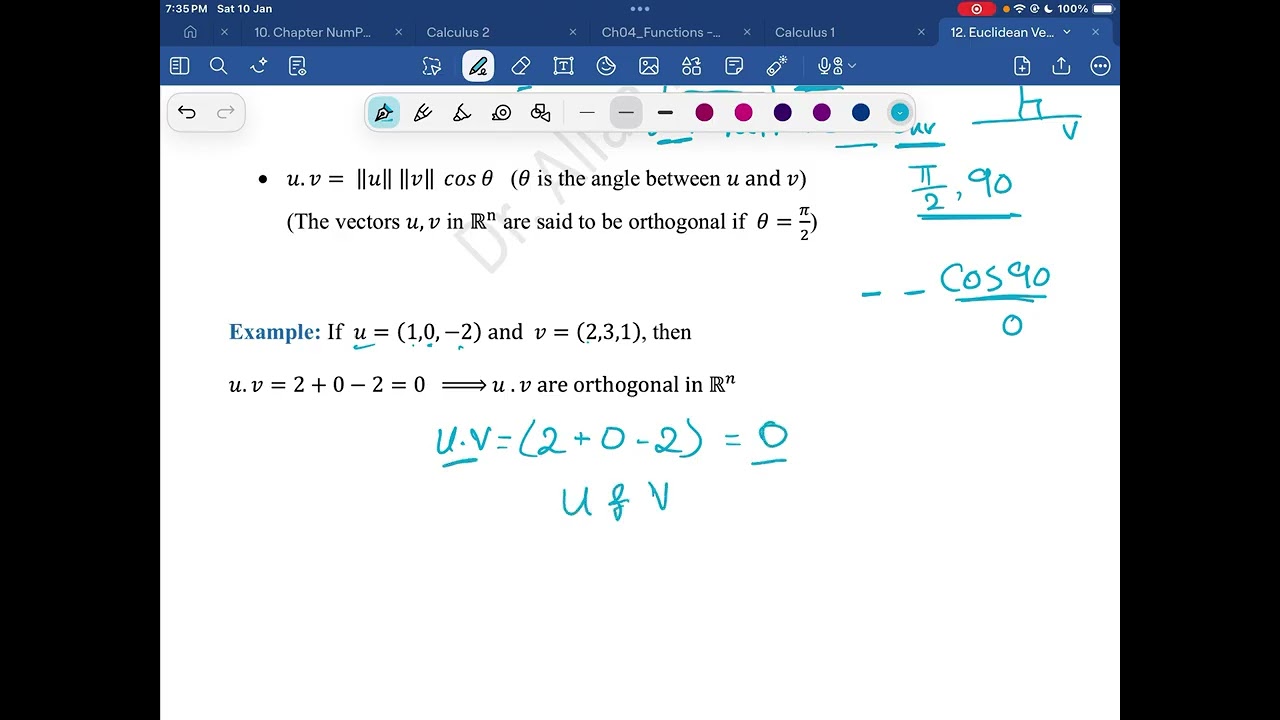 7:35 PM Sat 10 Jan 100%
10. Chapter NumP... Calculus 2 Ch04_Functions -... Calculus 1 12. Euclidean Ve...
v
• u.v = ‖u‖ ‖v‖ cos θ (θ is the angle between u and v)
π/2, 90
(The vectors u, v in ℝⁿ are said to be orthogonal if θ = π/2)
Dr.
-- Cos 90
0
Example: If u = (1,0,−2) and v = (2,3,1), then
u.v = 2 + 0 − 2 = 0 ⟹ u .v are orthogonal in ℝⁿ
u.v = (2 + 0 - 2) = 0
u & v